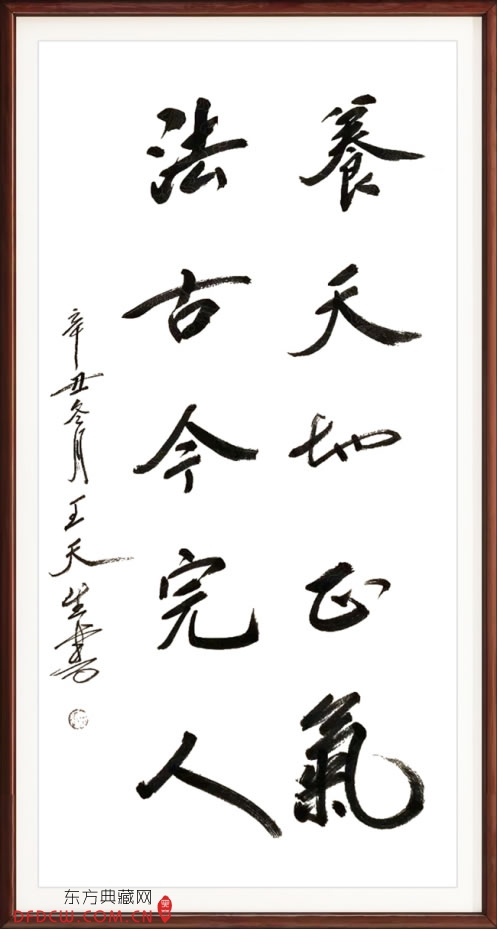 養天地正氣
法古今完人
辛丑冬月王天生書
东方典藏网
DFDCW.COM.CN